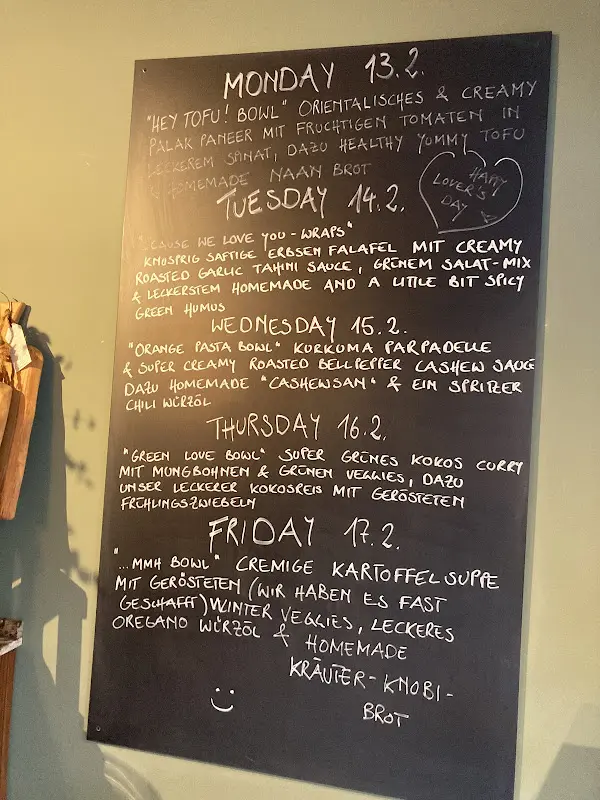 MONDAY 13.2.
"HEY TOFU! BOWL" ORIENTALISCHES & CREAMY
PALAK PANEER MIT FRUCHTIGEN TOMATEN IN
LECKEREM SPINAT, DAZU HEALTHY YUMMY TOFU
& HOMEMADE NAAN BROT
HAPPY
LOVER'S
DAY
TUESDAY 14.2.
"'CAUSE WE LOVE YOU-WRAPS"
KNUSPRIG SAFTIGE ERBSEN FALAFEL MIT CREAMY
ROASTED GARLIC TAHINI SAUCE, GRÜNEM SALAT-MIX
& LECKERSTEM HOMEMADE AND A LITTLE BIT SPICY
GREEN HUMUS
WEDNESDAY 15.2.
"ORANGE PASTA BOWL" KURKUMA PARPADELLE
& SUPER CREAMY ROASTED BELLPEPPER CASHEW SAUCE
DAZU HOMEMADE "CASHEWSAN" & EIN SPRITZER
CHILI WÜRZÖL
THURSDAY 16.2.
"GREEN LOVE BOWL" SUPER GRÜNES KOKOS CURRY
MIT MUNGBOHNEN & GRÜNEN VEGGIES, DAZU
UNSER LECKERER KOKOSREIS MIT GERÖSTETEN
FRÜHLINGSZWIEBELN
FRIDAY 17.2.
"...MMH BOWL" CREMIGE KARTOFFELSUPPE
MIT GERÖSTETEN (WIR HABEN ES FAST
GESCHAFFT) WINTER VEGGIES, LECKERES
OREGANO WÜRZÖL & HOMEMADE
KRÄUTER-KNOBI-
BROT